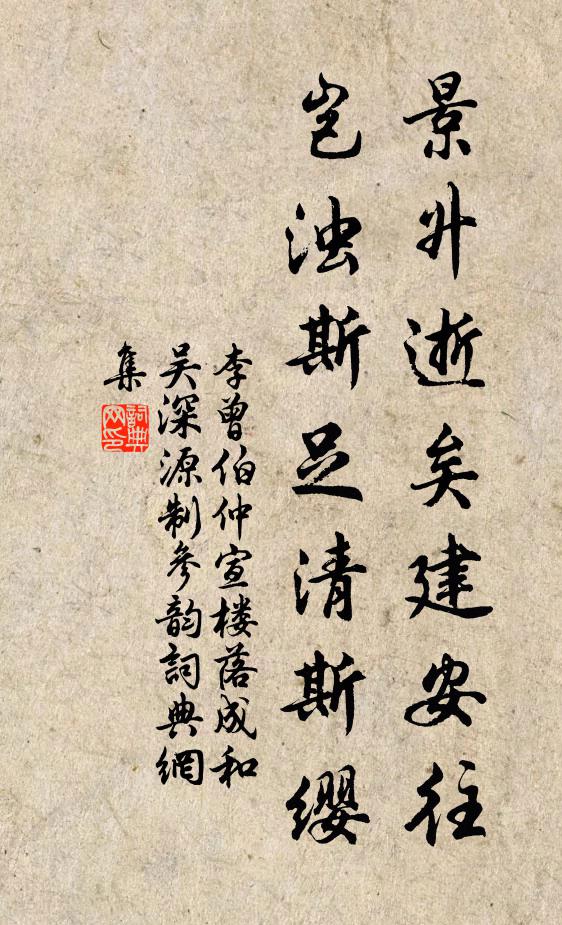 景升逝矣建安往
岂浊斯足清斯缨
李曾伯仲宣楼落成和
吴深源制参韵詞典網
集
詞典網印